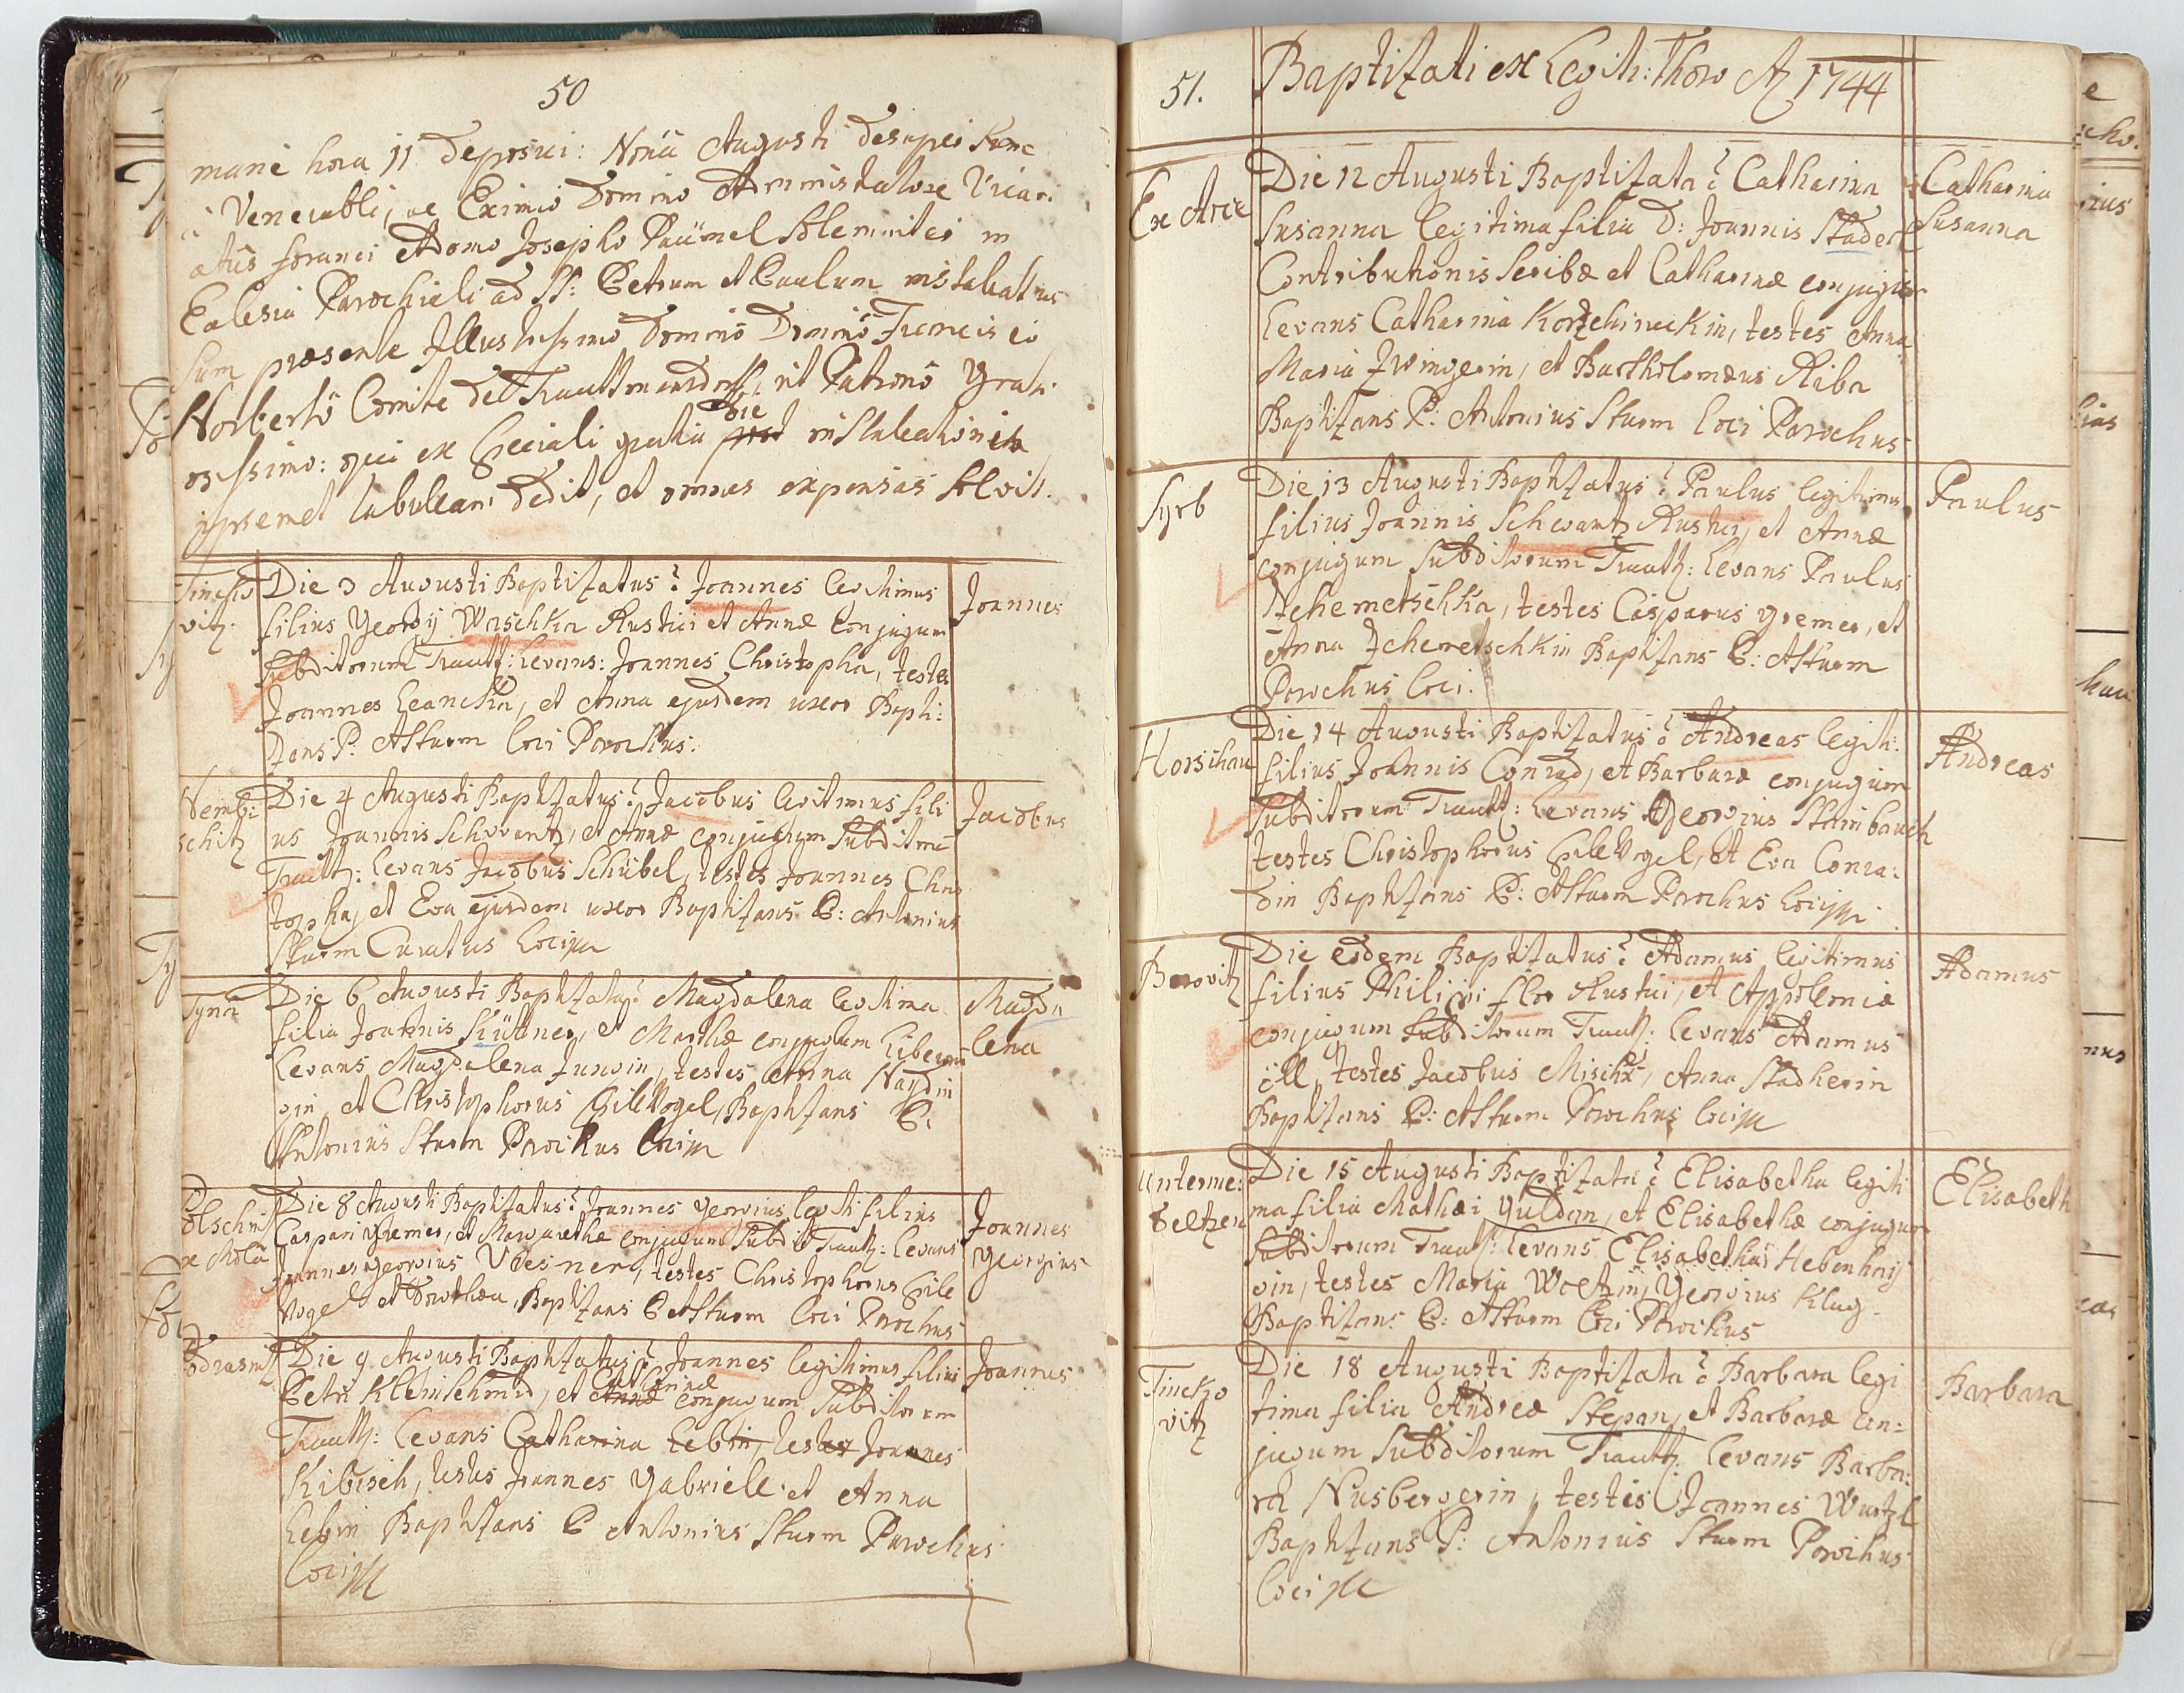 50
mane hora 11 deposui: Nona Augusti desuper hunc
a Venerabli, ac Eximio Domino Administratore Vicari
atus foranei Adamo Josepho Paümel Solemniter in
Eclesia Parochiali ad SS: Petrum et Paulum instalatus
sum praesente Illustrissimo Domino Domino Francisco
Norberto Comite de Trauttmansdorff, ut Patrono Grati
osissimo: qui ex speciali gratia die instalationis
ipsemet tabulam dedit, et omnes expensas solvit.
Tincho
vitz.
Die 3 Augusti Baptizatus e Joannes legitimus
filius Georgij Waschka Rustici et Annæ conjugum
Subditorum Trautt: levans: Joannes Christopha, testes
Joannes Leancka, et Anna ejusdem uxor Bapti:
zans P: A Sturm loci Parochus.
Joannes
Nembi
schitz
Die 4 Augusti Baptizatus e Jacobus legitimus fili
us Joannis Schwantz, et Annæ conjugum Subditorū
Trautt: levans Jacobus Schübel, testes Joannes Chris
topha, et Eva ejusdem uxor Baptizans P: Antonius
Sturm Curatus Loci
Jacobus
Tyna
Die 6 Augusti Baptizata e Magdalena legitima
filia Joannis Küttner, et Marthæ conjugum Liberorū
levans Magdalena Jungin, testes Anna Haydin
gin, et Christophorus Spilvogel, Baptizans P:
Antonius Sturm Parochus Loci
Magda
lena
Polschnitz
ex Mola
Die 8 Augusti Baptizatus e Joannes Georgius legiti filius
Caspari Gremer, et Margarethæ conjugum Subdit Trautt: levans
Joannes Georgius Vdesner, testes Christophorus Spile
vogel et Dorothea, Baptizans P A Sturm loci Parochus
Joannes
Georgius
Podrasnitz
Die 9 Augusti Baptizatus e Joannes legitimus filius
Petri Kleinschmid, et Annæ Catharinæ conjugum Subditorum
Trautt: levans Catharina Lebin, testes Joannes
Kibisch, testes Joannes Gabriell et Anna
Lebin Baptizans P Antonius Sturm Parochus
Loci
Joannes
51.
Baptizati ex Legit: Thoro Ao 1744
Ex Arce
Die 12 Augusti Baptizata e Catharina
Susanna legitima filia D: Joannis Stader
Contributionis Scribæ et Catharinæ conjugis
levans Catharina Korzchineckin, testes Anna
Maria Zwingerin, et Bartholomæus Riba
Baptizans P: Antonius Sturm loci Parochus
Catharina
Susanna
Syrb
Die 13 Augusti Baptizatus e Paulus legitimus
filius Joannis Schwantz Rustici, et Annæ
conjugum Subditorum Trautt: levans Paulus
Zchemetschka, testes Casparus Gremer, et
Anna Zchemetschkin Baptizans P: A Sturm
Parochus loci.
Paulus
Horschau
Die 14 Augusti Baptizatus e Andreas legiti:
filius Joannis Conrad, et Barbaræ conjugum
Subditorum Trautt: levans Georgius Stainbauch
testes Christophorus Spilvogel, et Eva Conra:
din Baptizans P: A Sturm Parochus Loci
Andreas
Borovitz
Die eodem Baptizatus e Adamus legitimus
filius Philippi Flor Rustici, et Appoloniæ
conjugum Subditorum Trautt: levans Adamus
öll, testes Jacobus Mischka, Anna Stadherin
Baptizans P: A Sturm Parochus Loci
Adamus
Unterme:
deltzen
Die 15 Augusti Baptizata e Elisabetha legiti
ma filia Mathæi Guldan, et Elisabethæ conjugum
Subditorum Trautt: levans Elisabetha Hebenhrij
gin, testes Maria Woltzin, Georgius Klug.
Baptizans P: A Sturm Loci Parochus
Elisabeth
Tinchzo
vitz
Die 18 Augusti Baptizata e Barbara legi
tima filia Andreæ Stepan, et Barbaræ con=
jugum Subditorum Trautt: levans Barba:
ra Nusbergerin, testes Joannes Wurtzl
Baptizans P: Antonius Sturm Parochus
Loci
Barbara